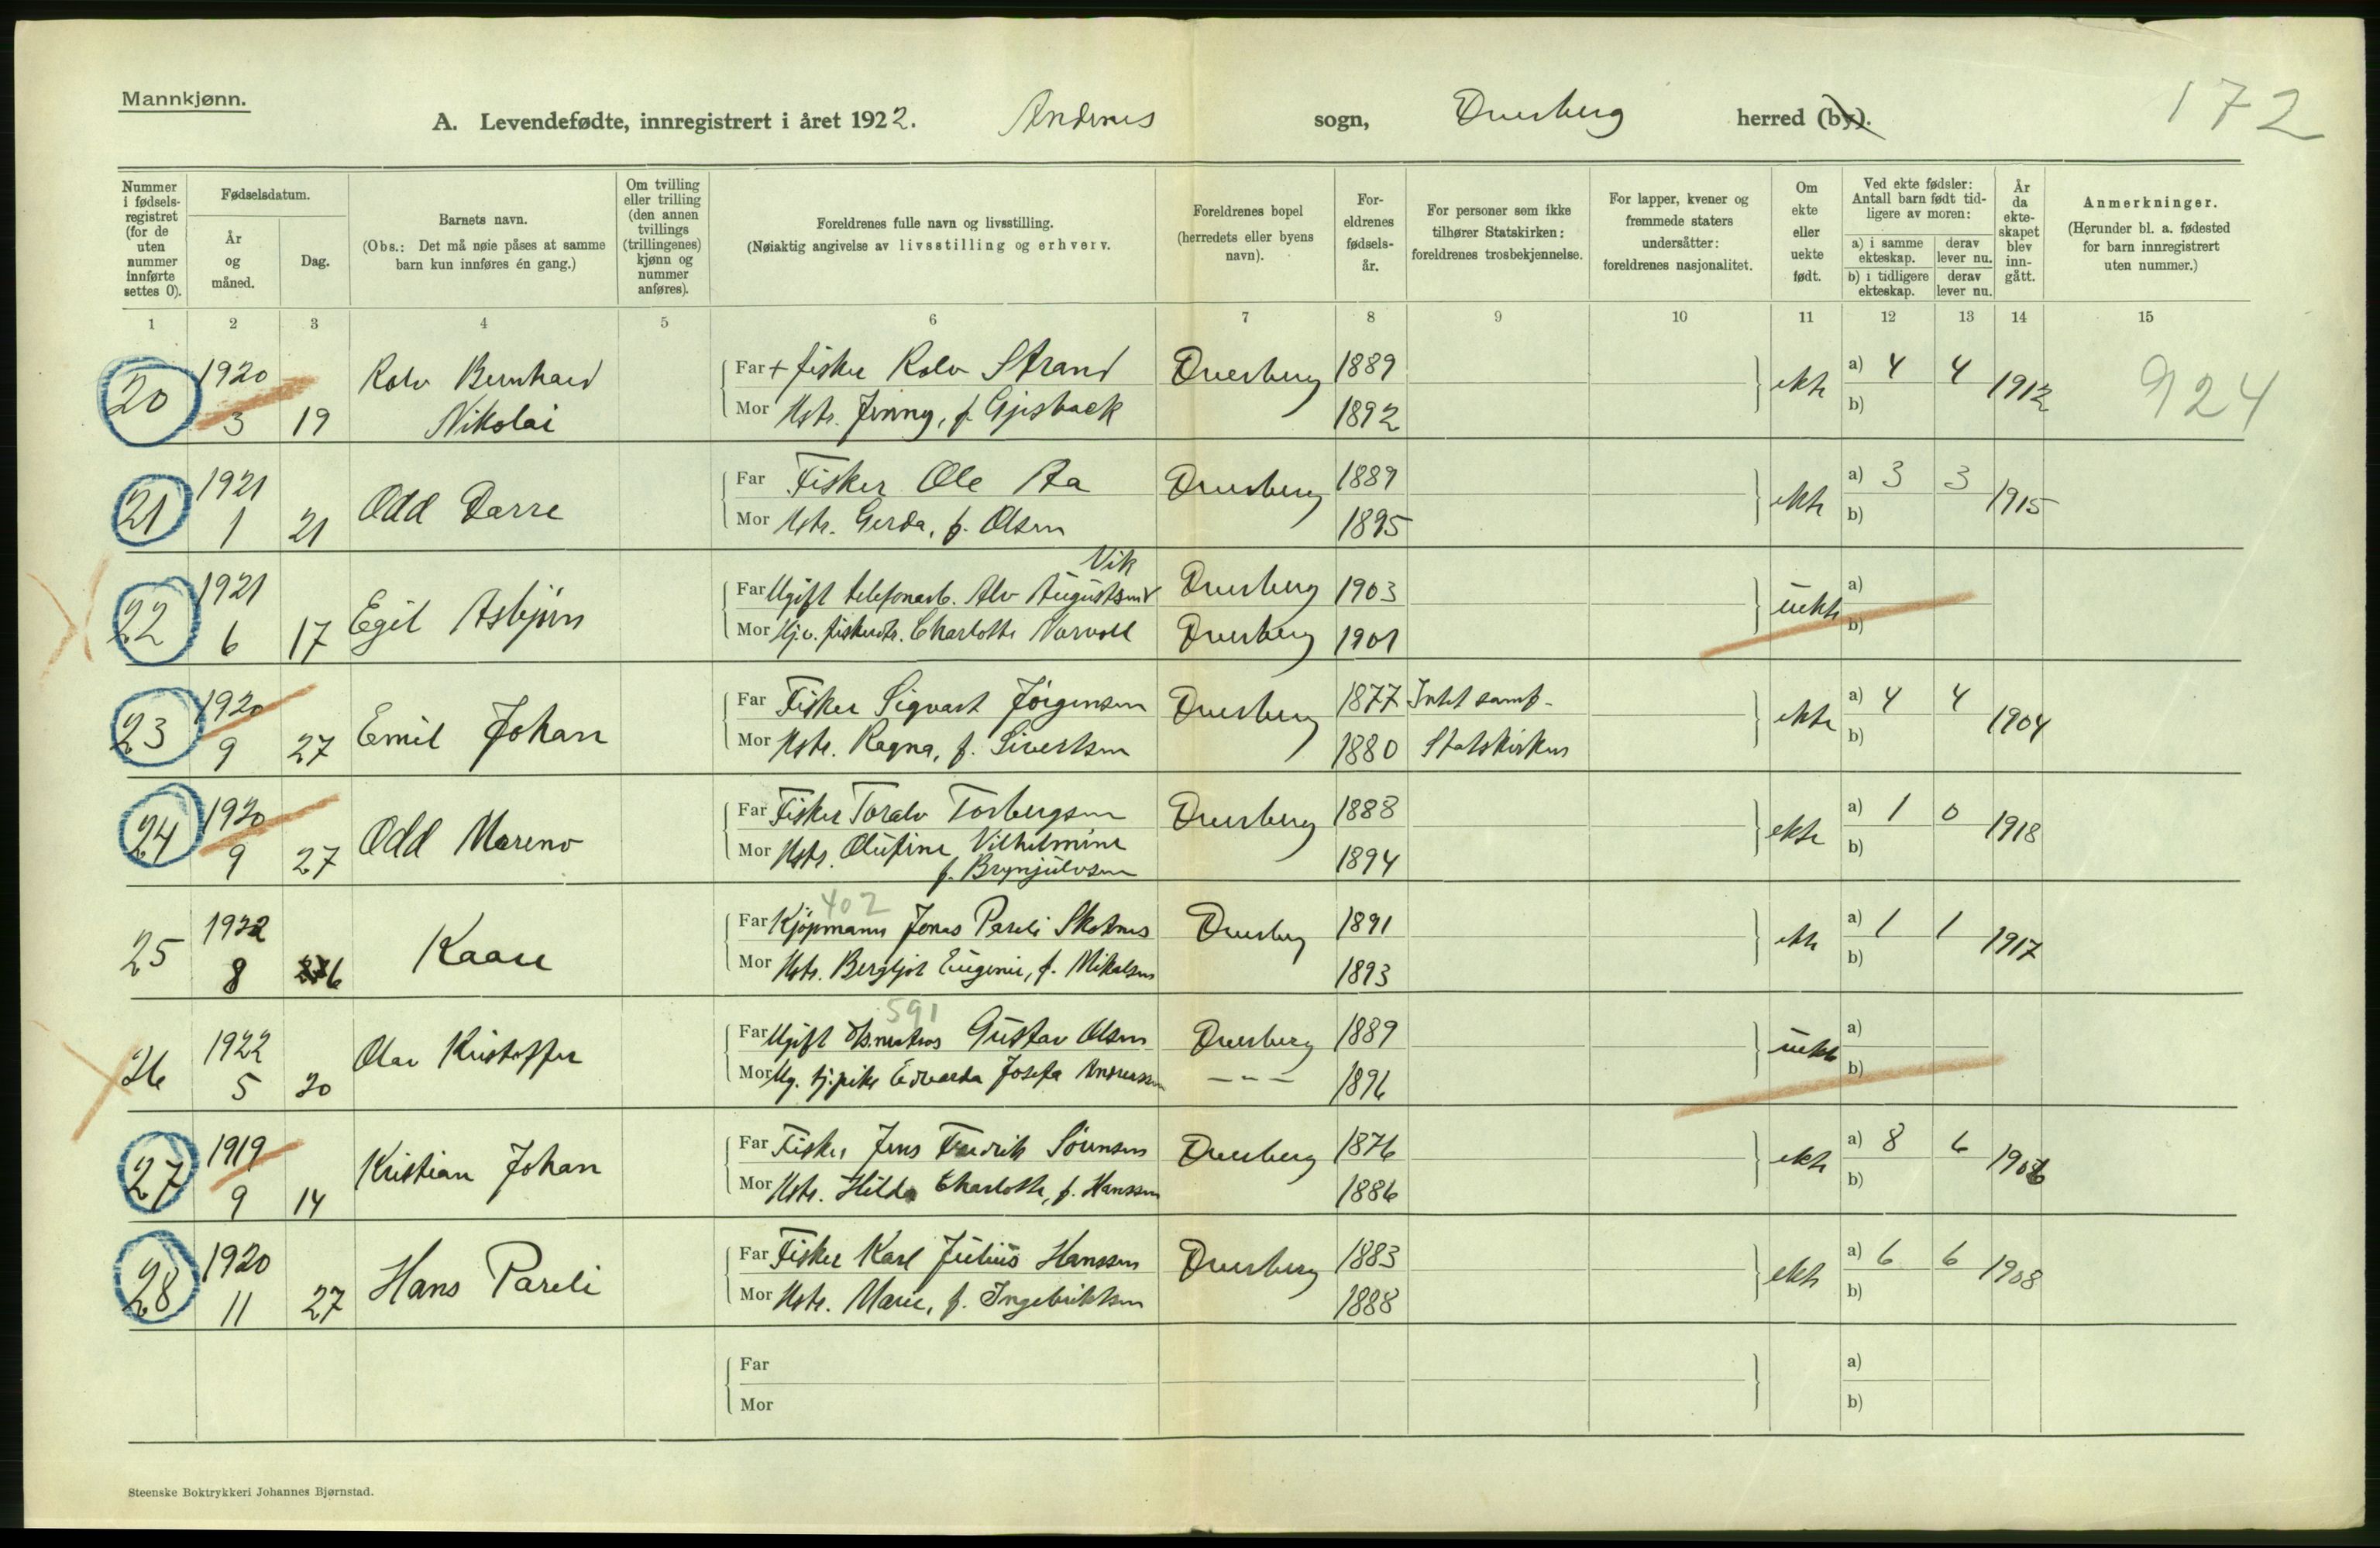 Mannkjønn.
A. Levendefødte, innregistrert i året 1922. Andenes sogn, Dverberg herred (by).
172
Nummer i fødsels-registret (for de uten nummer innførte settes 0).
Fødselsdatum.
År og måned.
Dag.
Barnets navn.
(Obs.: Det må nøie påses at samme barn kun innføres én gang.)
Om tvilling eller trilling (den annen tvillings (trillingenes) kjønn og nummer anføres).
Foreldrenes fulle navn og livsstilling.
(Nøiaktig angivelse av livsstilling og erhverv.
Foreldrenes bopel (herredets eller byens navn).
For-eldrenes fødsels-år.
For personer som ikke tilhører Statskirken: foreldrenes trosbekjennelse.
For lapper, kvener og fremmede staters undersåtter: foreldrenes nasjonalitet.
Om ekte eller uekte født.
Ved ekte fødsler: Antall barn født tid-ligere av moren:
a) i samme ekteskap. derav lever nu.
b) i tidligere ekteskap. derav lever nu.
År da ekte-skapet blev inn-gått.
Anmerkninger.
(Herunder bl. a. fødested for barn innregistrert uten nummer.)
1 2 3 4 5 6 7 8 9 10 11 12 13 14 15
20 1920 3 19 Rolv Bernhard Nikolai
Far + fisker Rolv Strand Dverberg 1889 ekte a) 4 4 1912 924
Mor Hstr. Jenny, f. Gjesbaek 1892 b)
21 1921 1 21 Odd Darre
Far Fisker Ole Aa Dverberg 1889 ekte a) 3 3 1915
Mor Hstr. Gerda, f. Olsen 1895 b)
22 1921 6 17 Egil Asbjørn
Vik
Far Ugift telefonarb. Alv Augustsen Dverberg 1903 uekte a)
Mor Hj.v. fiskerdtr. Charlotte Norvoll Dverberg 1901 b)
23 1920 9 27 Emil Johan
Far Fisker Sigvart Jørgensen Dverberg 1877 Intet samf. ekte a) 4 4 1904
Mor Hstr. Ragna, f. Sivertsen 1880 Statskirken b)
24 1920 9 27 Odd Moreno
Far Fisker Toralv Torbergsen Dverberg 1888 ekte a) 1 0 1918
Mor Hstr. Olufine Vilhelmine f. Brynjulvsen 1894 b)
402
25 1922 8 26 Kaare
Far Kjøpmann Jonas Pareli Skotnes Dverberg 1891 ekte a) 1 1 1917
Mor Hstr. Bergljot Eugenie, f. Mikalsen 1893 b)
591
26 1922 5 20 Olav Kristoffer
Far Ugift matros Gustav Olsen Dverberg 1889 uekte a)
Mor Ug. tj.pike Edvarda Josefa Andreassen — - — 1896 b)
27 1919 9 14 Kristian Johan
Far Fisker Jens Fredrik Sørensen Dverberg 1876 ekte a) 8 6 1906
Mor Hstr. Hilda Charlotte, f. Hanssen 1886 b)
28 1920 11 27 Hans Pareli
Far Fisker Karl Julius Hanssen Dverberg 1883 ekte a) 6 6 1908
Mor Hstr. Marie, f. Ingebriktsen 1888 b)
Far a)
Mor b)
Steenske Boktrykkeri Johannes Bjørnstad.